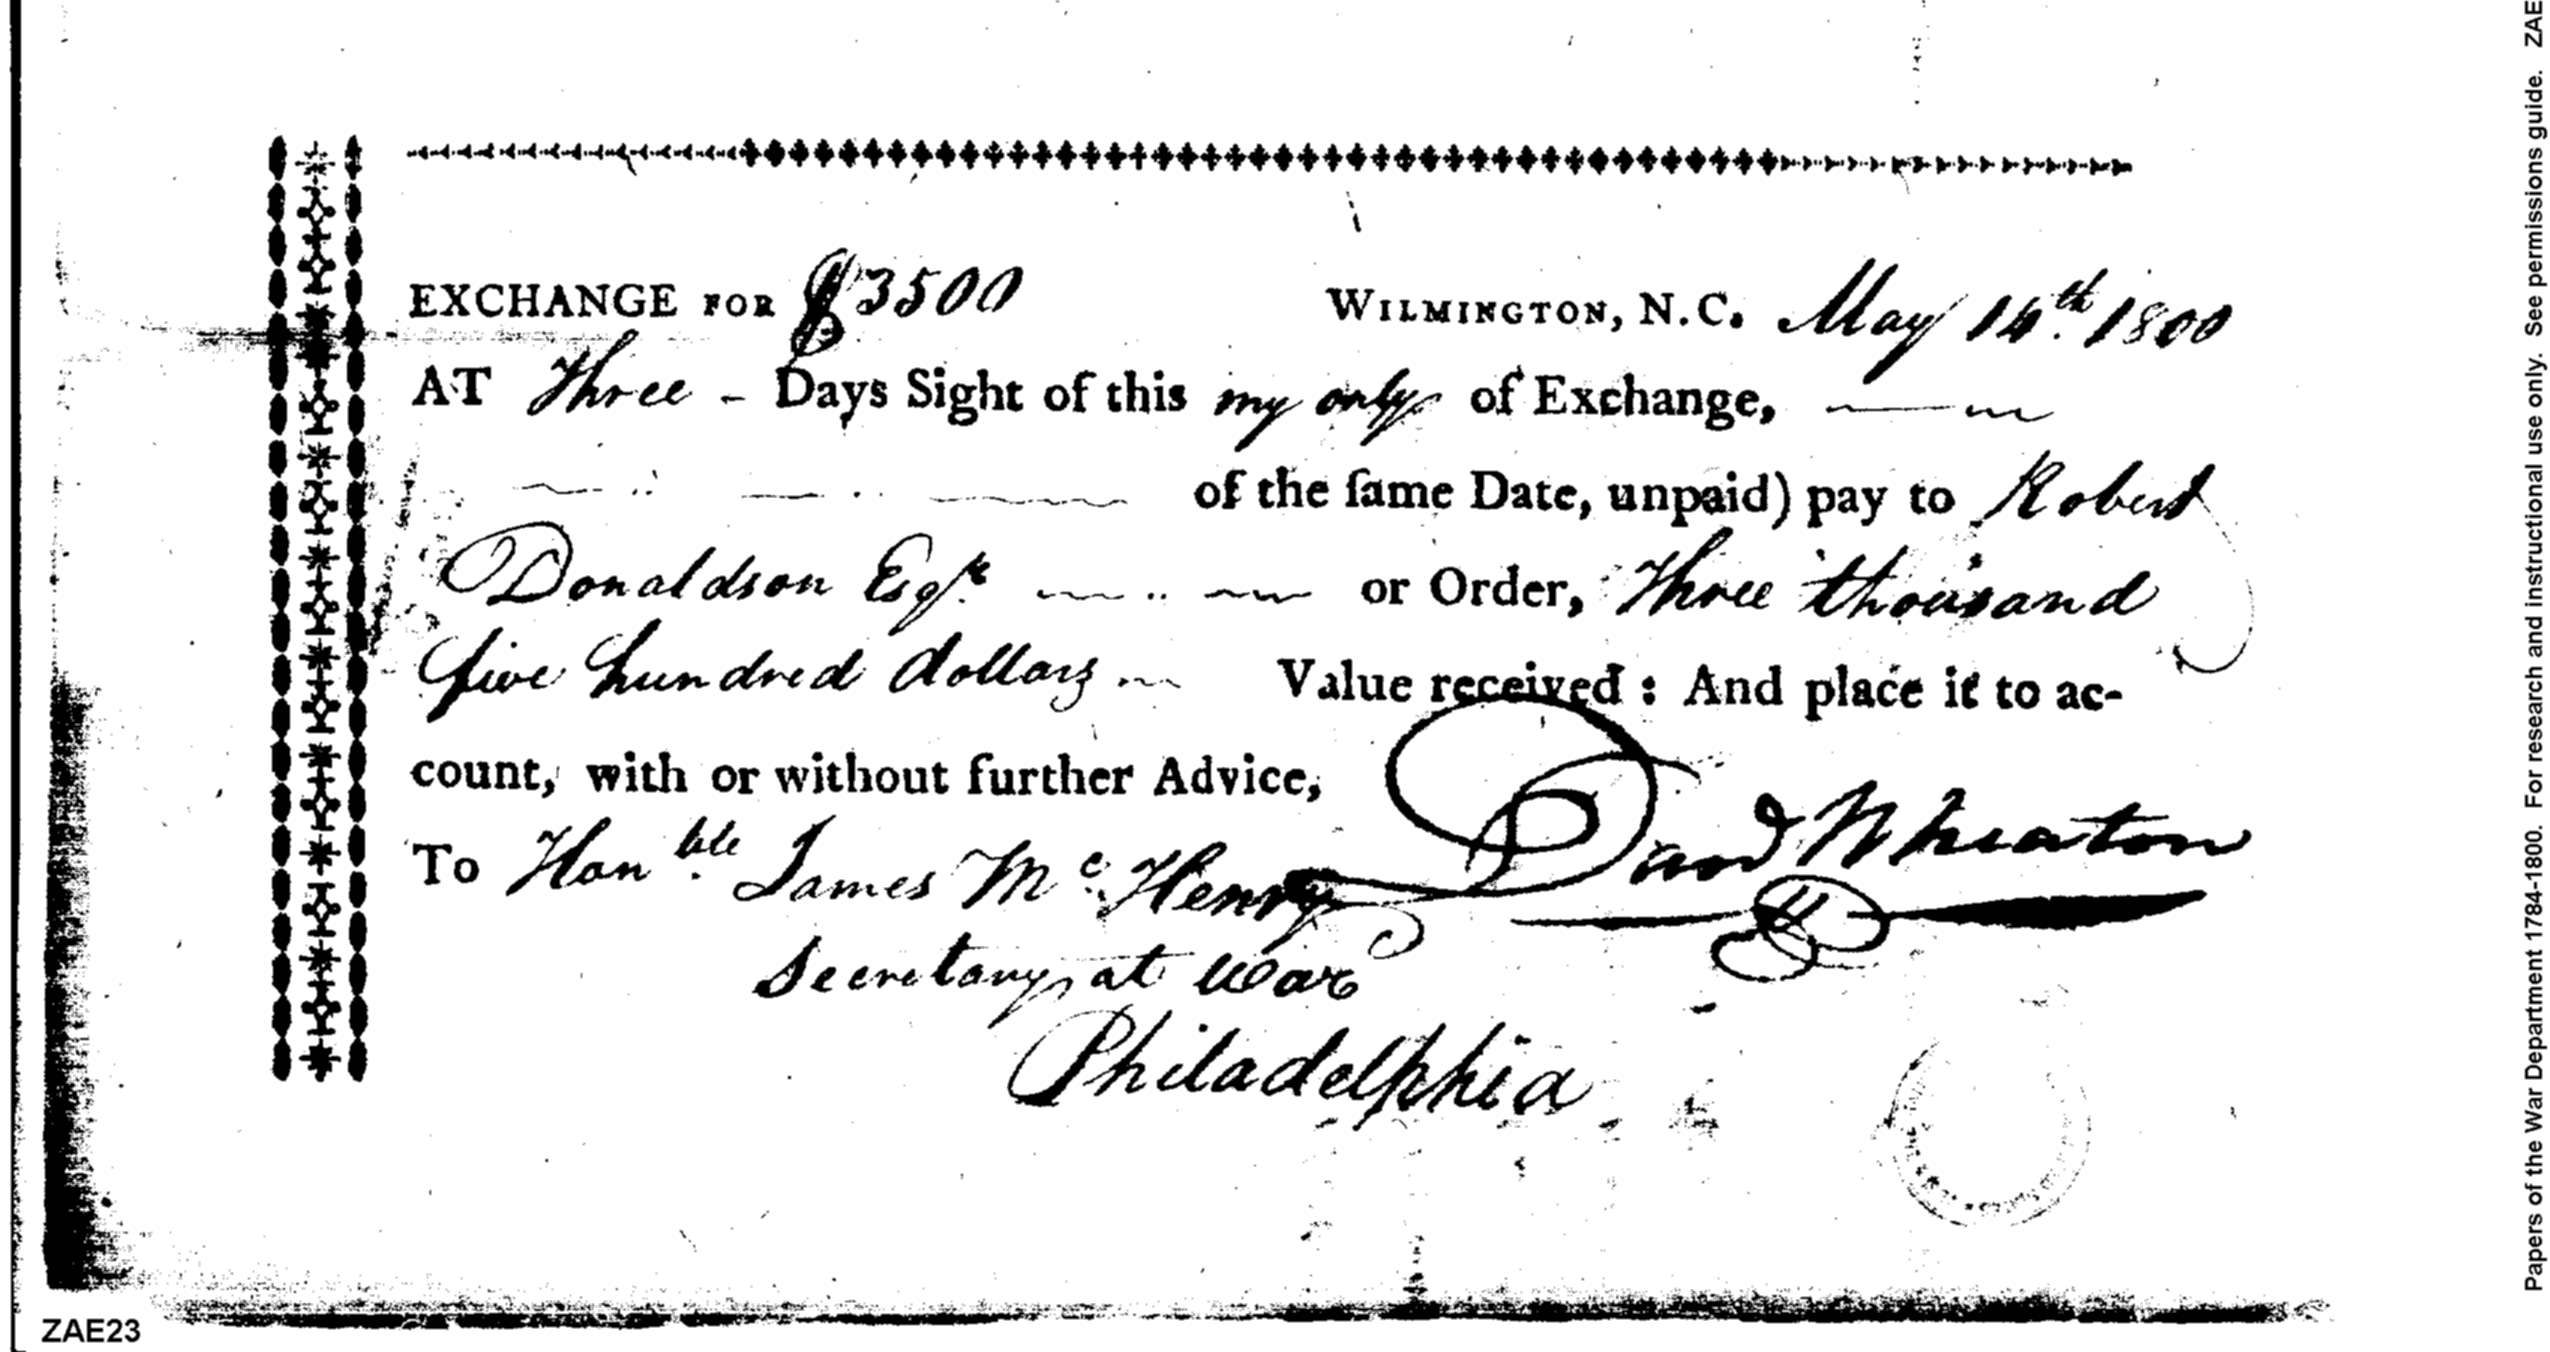 EXCHANGE FOR $3500 WILMINGTON, N.C. May 14th. 1800
AT Three - Days Sight of this my only of Exchange,
of the ſame Date, unpaid) pay to Robert
Donaldson Esqr. or Order, Three thousand
five hundred dollars Value received: And place it to ac-
count, with or without further Advice,
David Wheaton
To Honble. James McHenry
Secretary at War
Philadelphia
ZAE23
Papers of the War Department 1784-1800. For research and instructional use only. See permissions guide. ZAE